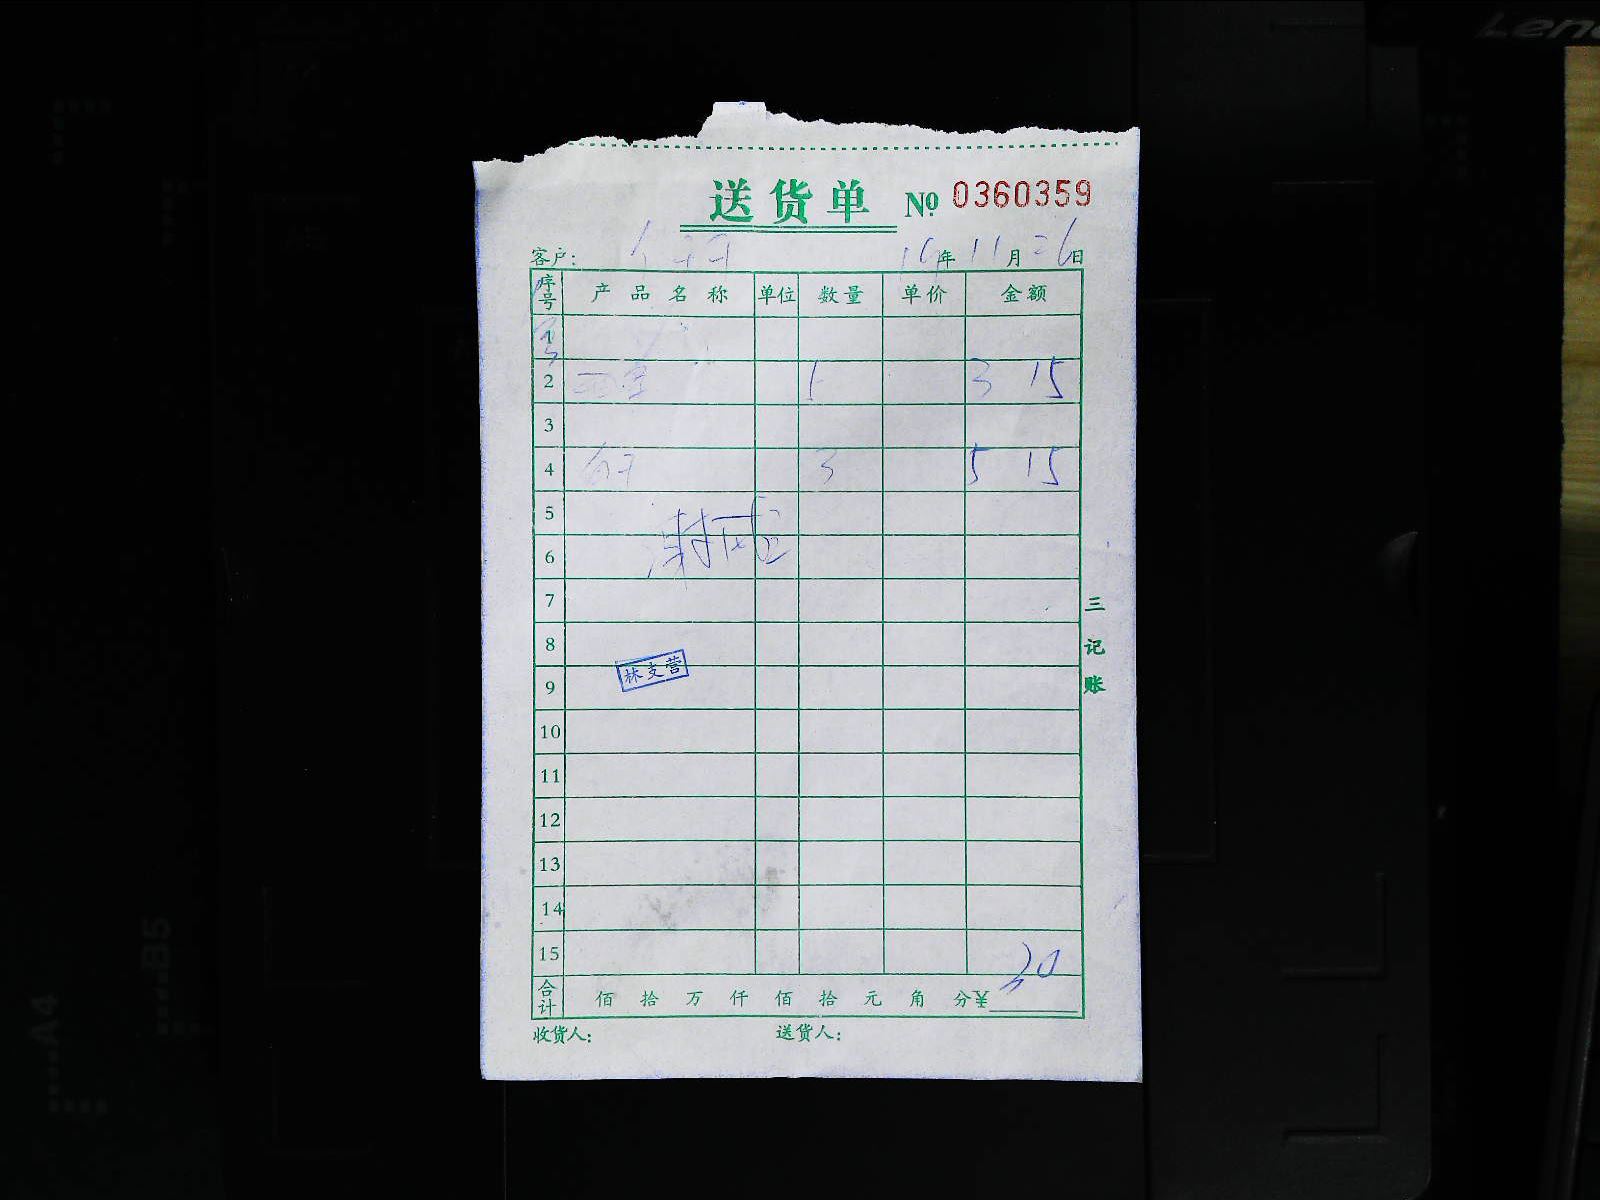 送货单 Nº 0360359
客户: 16年11月26日
序号 产品名称 单位 数量 单价 金额
1
2 西芹 1 3 15
3
4 3 5 15
5
6
7
8
9
10
11
12
13
14
15
林支营
三记账
合计 佰 拾 万 仟 佰 拾 元 角 分 ¥ 30
收货人: 送货人:
A4
B5